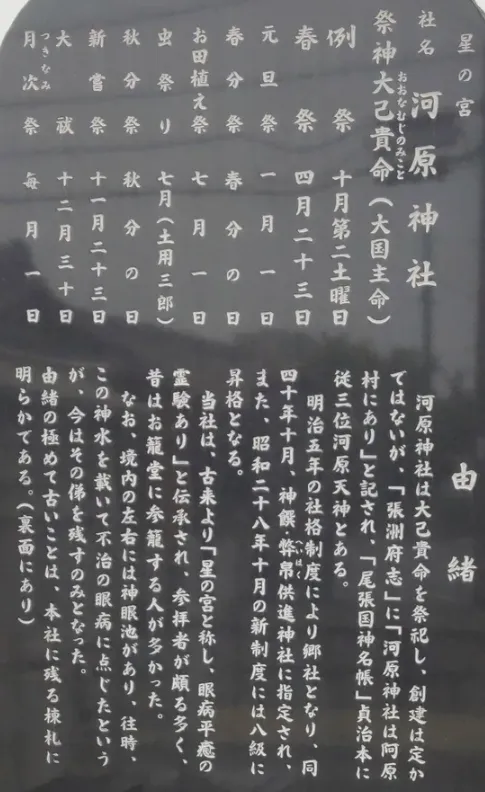 星の宮
社名 河原神社
祭神 大己貴命（大国主命）
おおなむじのみこと
例祭 十月第二土曜日
春祭 四月二十三日
元旦祭 一月一日
春分祭 春分の日
お田植え祭 七月一日
虫祭り 七月（土用三郎）
秋分祭 秋分の日
新嘗祭 十一月二十三日
大祓 十二月三十日
月次祭 毎月一日
つきなみ
由緒
河原神社は大己貴命を祭祀し、創建は定か
ではないが、「張洲府志」に「河原神社は阿原
村にあり」と記され、「尾張国神名帳」貞治本に
従三位河原天神とある。
明治五年の社格制度により郷社となり、同
四十年十月、神饌幣帛供進神社に指定され、
へいはく
また、昭和二十八年十月の新制度には八級に
昇格となる。
当社は、古来より「星の宮と称し、眼病平癒の
霊験あり」と伝承され、参拝者が頗る多く、
昔はお籠堂に参籠する人が多かった。
なお、境内の左右には神眼池があり、往時、
この神水を戴いて不治の眼病に点じたという
が、今はその俤を残すのみとなった。
由緒の極めて古いことは、本社に残る棟札に
明らかである。（裏面にあり）